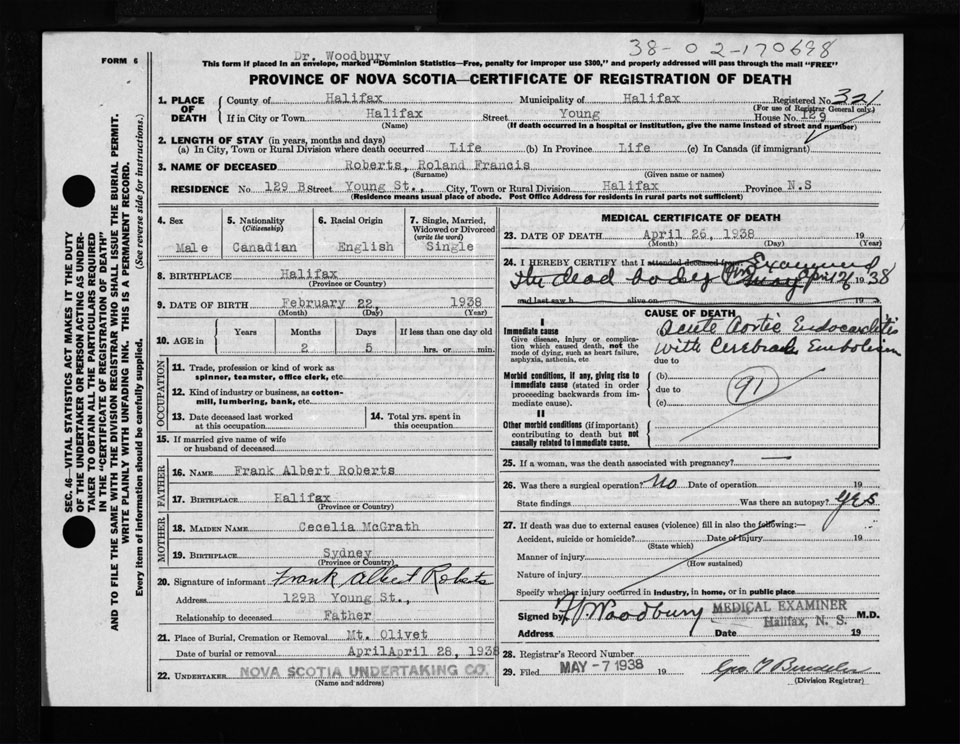 38-02-170698
FORM 6
Dr. Woodbury
This form if placed in an envelope, marked "Dominion Statistics—Free, penalty for improper use $300," and properly addressed will pass through the mail "FREE"
PROVINCE OF NOVA SCOTIA—CERTIFICATE OF REGISTRATION OF DEATH
1. PLACE OF DEATH
County of Halifax Municipality of Halifax Registered No. 321
(For use of Registrar General only.)
If in City or Town Halifax Street Young House No. 129
(Name) (If death occurred in a hospital or institution, give the name instead of street and number)
2. LENGTH OF STAY (in years, months and days)
(a) In City, Town or Rural Division where death occurred Life (b) In Province Life (c) In Canada (if immigrant)
3. NAME OF DECEASED Roberts, Roland Francis
(Surname) (Given name or names)
RESIDENCE No 129 B Street Young St., City, Town or Rural Division Halifax Province N.S
(Residence means usual place of abode. Post Office Address for residents in rural parts not sufficient)
4. Sex
Male
5. Nationality
(Citizenship)
Canadian
6. Racial Origin
English
7. Single, Married,
Widowed or Divorced
(write the word)
Single
8. BIRTHPLACE Halifax
(Province or Country)
9. DATE OF BIRTH February 22, 1938
(Month) (Day) (Year)
10. AGE in
Years Months Days If less than one day old
2 5 hrs. or min.
OCCUPATION
11. Trade, profession or kind of work as
spinner, teamster, office clerk, etc
12. Kind of industry or business, as cotton-
mill, lumbering, bank, etc.
13. Date deceased last worked
at this occupation
14. Total yrs. spent in
this occupation
15. If married give name of wife
or husband of deceased
FATHER
16. NAME Frank Albert Roberts
17. BIRTHPLACE Halifax
(Province or Country)
MOTHER
18. MAIDEN NAME Cecelia McGrath
19. BIRTHPLACE Sydney
(Province or Country)
20. Signature of informant Frank Albert Roberts
Address 129B Young St.,
Relationship to deceased Father
21. Place of Burial, Cremation or Removal Mt. Olivet
Date of burial or removal AprilApril 28, 1938
22. UNDERTAKER NOVA SCOTIA UNDERTAKING CO.
(Name and address)
MEDICAL CERTIFICATE OF DEATH
23. DATE OF DEATH April 26, 1938 19
(Month) (Day) (Year)
24. I HEREBY CERTIFY that I attended deceased from Examined
the dead body on April 26 1938
and last saw h alive on 19
CAUSE OF DEATH
I
Immediate cause
Give disease, injury or complica-
tion which caused death, not the
mode of dying, such as heart failure,
asphyxia, asthenia, etc
Acute Aortic Endocarditis
with Cerebral Embolism
due to
Morbid conditions, if any, giving rise to
immediate cause (stated in order
proceeding backwards from im-
mediate cause).
(b)
due to
(c)
91
II
Other morbid conditions (if important)
contributing to death but not
causally related to immediate cause.
25. If a woman, was the death associated with pregnancy? —
26. Was there a surgical operation? No Date of operation 19
State findings Was there an autopsy? yes
27. If death was due to external causes (violence) fill in also the following:—
Accident, suicide or homicide? Date of Injury 19
(State which)
Manner of injury
(How sustained)
Nature of injury
Specify whether injury occurred in industry, in home, or in public place
Signed by Woodbury MEDICAL EXAMINER M.D.
Halifax, N. S.
Address Date 19
28. Registrar's Record Number
29. Filed MAY -7 1938 19
(Division Registrar)
SEC. 46—VITAL STATISTICS ACT MAKES IT THE DUTY
OF THE UNDERTAKER OR PERSON ACTING AS UNDER-
TAKER TO OBTAIN ALL THE PARTICULARS REQUIRED
IN THE "CERTIFICATE OF REGISTRATION OF DEATH"
AND TO FILE THE SAME WITH THE DIVISION REGISTRAR WHO SHALL ISSUE THE BURIAL PERMIT.
WRITE PLAINLY WITH UNFADING INK. THIS IS A PERMANENT RECORD.
Every item of information should be carefully supplied. (See reverse side for instructions.)